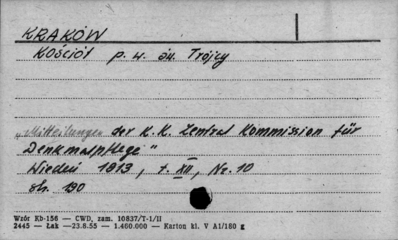 KRAKÓW
Kościół p. w. św. Trójcy
„Mitteilungen der K. K. Zentral Kommission für
Denkmalpflege"
Wiedeń 1913, t. XII, Nr. 10
str. 190
Wzór Kb-156 — CWD, zam. 10837/T-1/II
2445 — Łak —23.8.55 — 1.460.000 — Karton kl. V A1/180 g